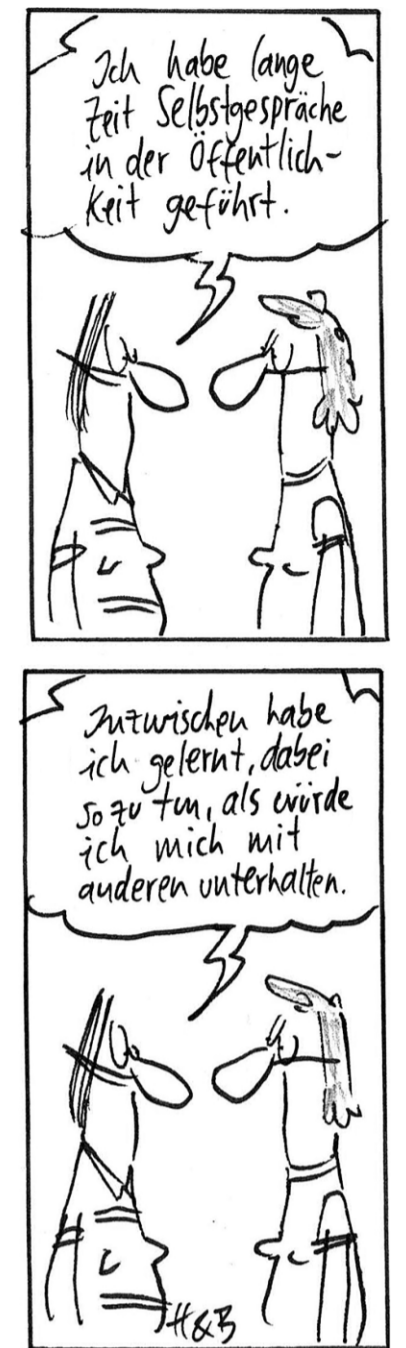 Ich habe lange
Zeit Selbstgespräche
in der Öffentlich-
keit geführt.
Inzwischen habe
ich gelernt, dabei
so zu tun, als würde
ich mich mit
anderen unterhalten.
H&B